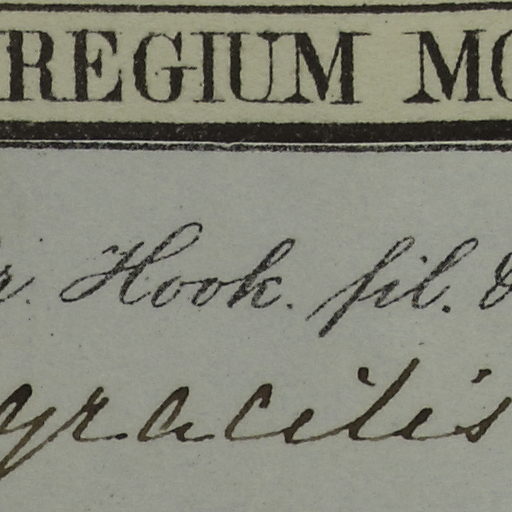 REGIUM MO
r. Hook. fil. &
gracilis